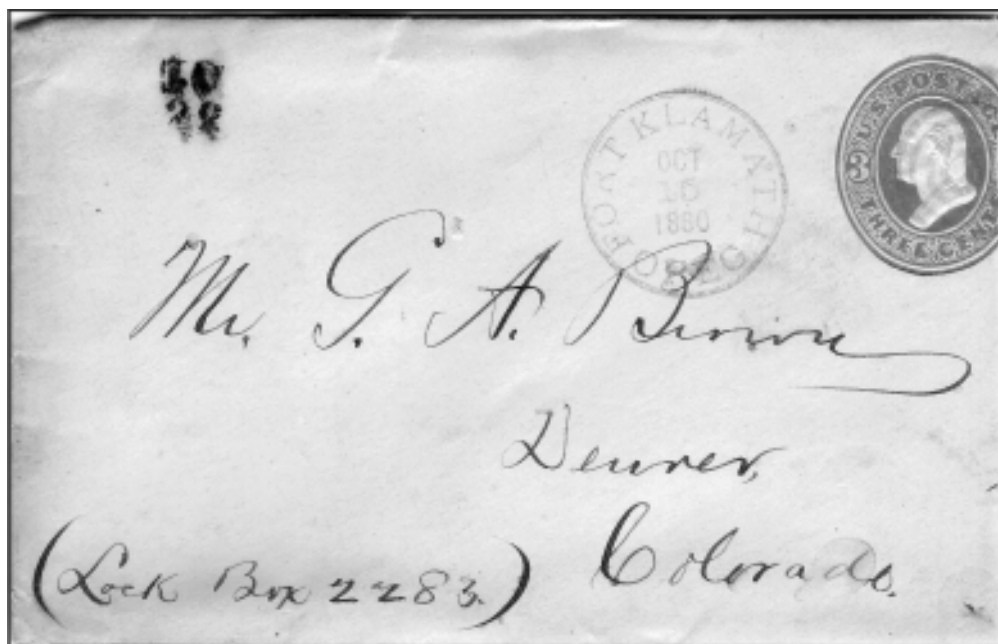 10
FORT KLAMATH OREG
OCT
1880
U.S. POSTAGE
3
THREE CENTS
Mr. G. A. Brown
Denver,
Colorado.
(Lock Box 2283.)